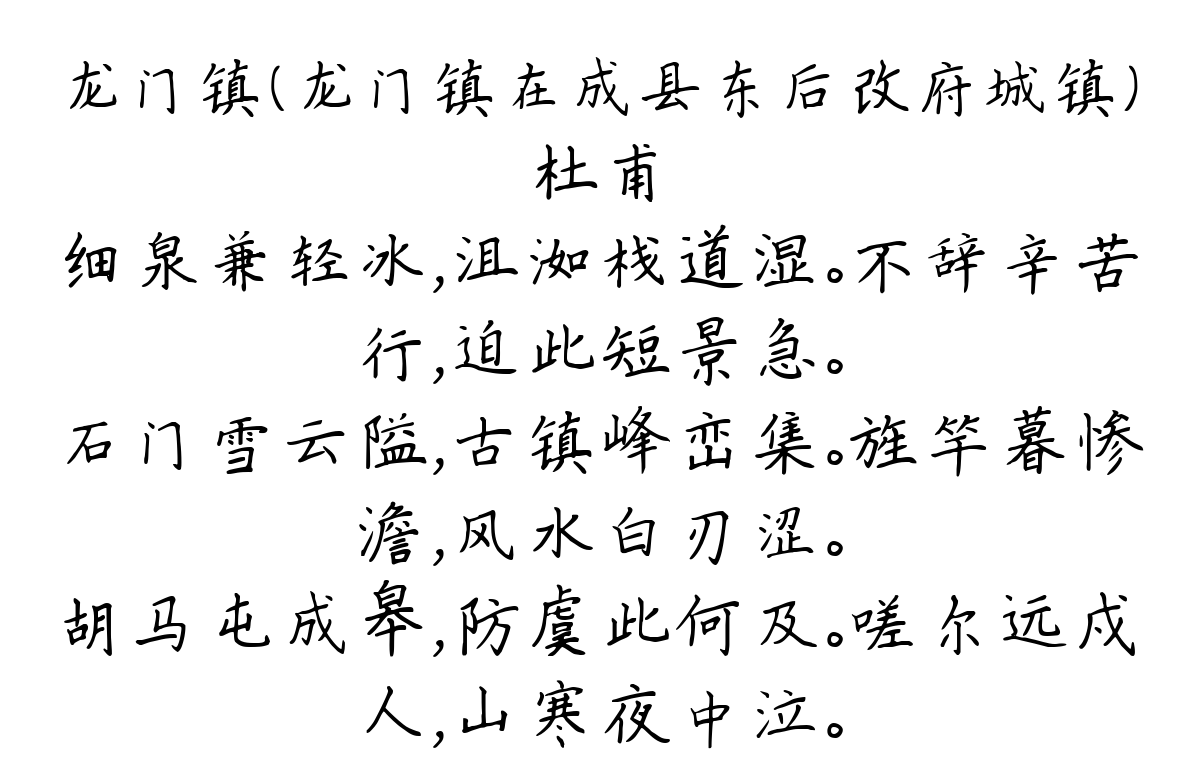 龙门镇(龙门镇在成县东后改府城镇)
杜甫
细泉兼轻冰,沮洳栈道湿。不辞辛苦
行,迫此短景急。
石门雪云隘,古镇峰峦集。旌竿暮惨
澹,风水白刃涩。
胡马屯成皋,防虞此何及。嗟尔远戍
人,山寒夜中泣。